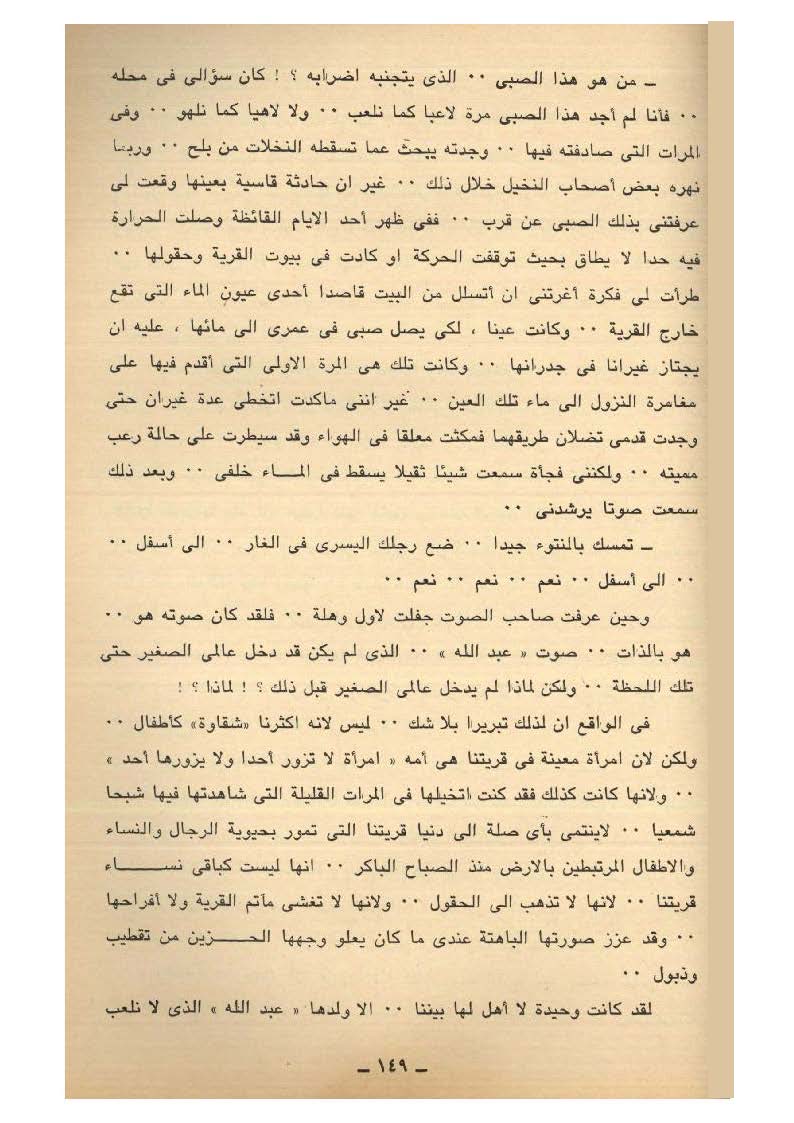 ـ من هو هذا الصبى ٠٠ الذى يتجنبه اضرابه ؟ ! كان سؤالى فى محله
٠٠ فأنا لم أجد هذا الصبى مرة لاعبا كما نلعب ٠٠ ولا لاهيا كما نلهو ٠٠ وفى
المرات التى صادفته فيها ٠٠ وجدته يبحث عما تسقطه النخلات من بلح ٠٠ وربما
نهره بعض أصحاب النخيل خلال ذلك ٠٠ غير ان حادثة قاسية بعينها وقعت لى
عرفتنى بذلك الصبى عن قرب ٠٠ ففى ظهر أحد الايام القائظة وصلت الحرارة
فيه حدا لا يطاق بحيث توقفت الحركة او كادت فى بيوت القرية وحقولها ٠٠
طرأت لى فكرة أغرتنى ان أتسلل من البيت قاصدا أحدى عيون الماء التى تقع
خارج القرية ٠٠ وكانت عينا ، لكى يصل صبى فى عمرى الى مائها ، عليه ان
يجتاز غيرانا فى جدرانها ٠٠ وكانت تلك هى المرة الاولى التى أقدم فيها على
مغامرة النزول الى ماء تلك العين ٠٠ غير اننى ماكدت اتخطى عدة غيران حتى
وجدت قدمى تضلان طريقهما فمكثت معلقا فى الهواء وقد سيطرت على حالة رعب
مميته ٠٠ ولكننى فجأة سمعت شيئا ثقيلا يسقط فى المــاء خلفى ٠٠ وبعد ذلك
سمعت صوتا يرشدنى ٠٠
ـ تمسك بالنتوء جيدا ٠٠ ضع رجلك اليسرى فى الغار ٠٠ الى أسفل ٠٠
٠٠ الى أسفل ٠٠ نعم ٠٠ نعم ٠٠ نعم ٠٠
وحين عرفت صاحب الصوت جفلت لاول وهلة ٠٠ فلقد كان صوته هو ٠٠
هو بالذات ٠٠ صوت « عبد الله » ٠٠ الذى لم يكن قد دخل عالمى الصغير حتى
تلك اللحظة ٠٠ ولكن لماذا لم يدخل عالمى الصغير قبل ذلك ؟ ! لماذا ؟ !
فى الواقع ان لذلك تبريرا بلا شك ٠٠ ليس لانه اكثرنا «شقاوة» كأطفال ٠٠
ولكن لان امرأة معينة فى قريتنا هى أمه « امرأة لا تزور أحدا ولا يزورها أحد »
٠٠ ولانها كانت كذلك فقد كنت اتخيلها فى المرات القليلة التى شاهدتها فيها شبحا
شمعيا ٠٠ لاينتمى بأى صلة الى دنيا قريتنا التى تمور بحيوية الرجال والنساء
والاطفال المرتبطين بالارض منذ الصباح الباكر ٠٠ انها ليست كباقى نســـاء
قريتنا ٠٠ لانها لا تذهب الى الحقول ٠٠ ولانها لا تغشى مآتم القرية ولا أفراحها
٠٠ وقد عزز صورتها الباهتة عندى ما كان يعلو وجهها الحـــزين من تقطيب
وذبول ٠٠
لقد كانت وحيدة لا أهل لها بيننا ٠٠ الا ولدها « عبد الله » الذى لا نلعب
ـ ١٤٩ ـ